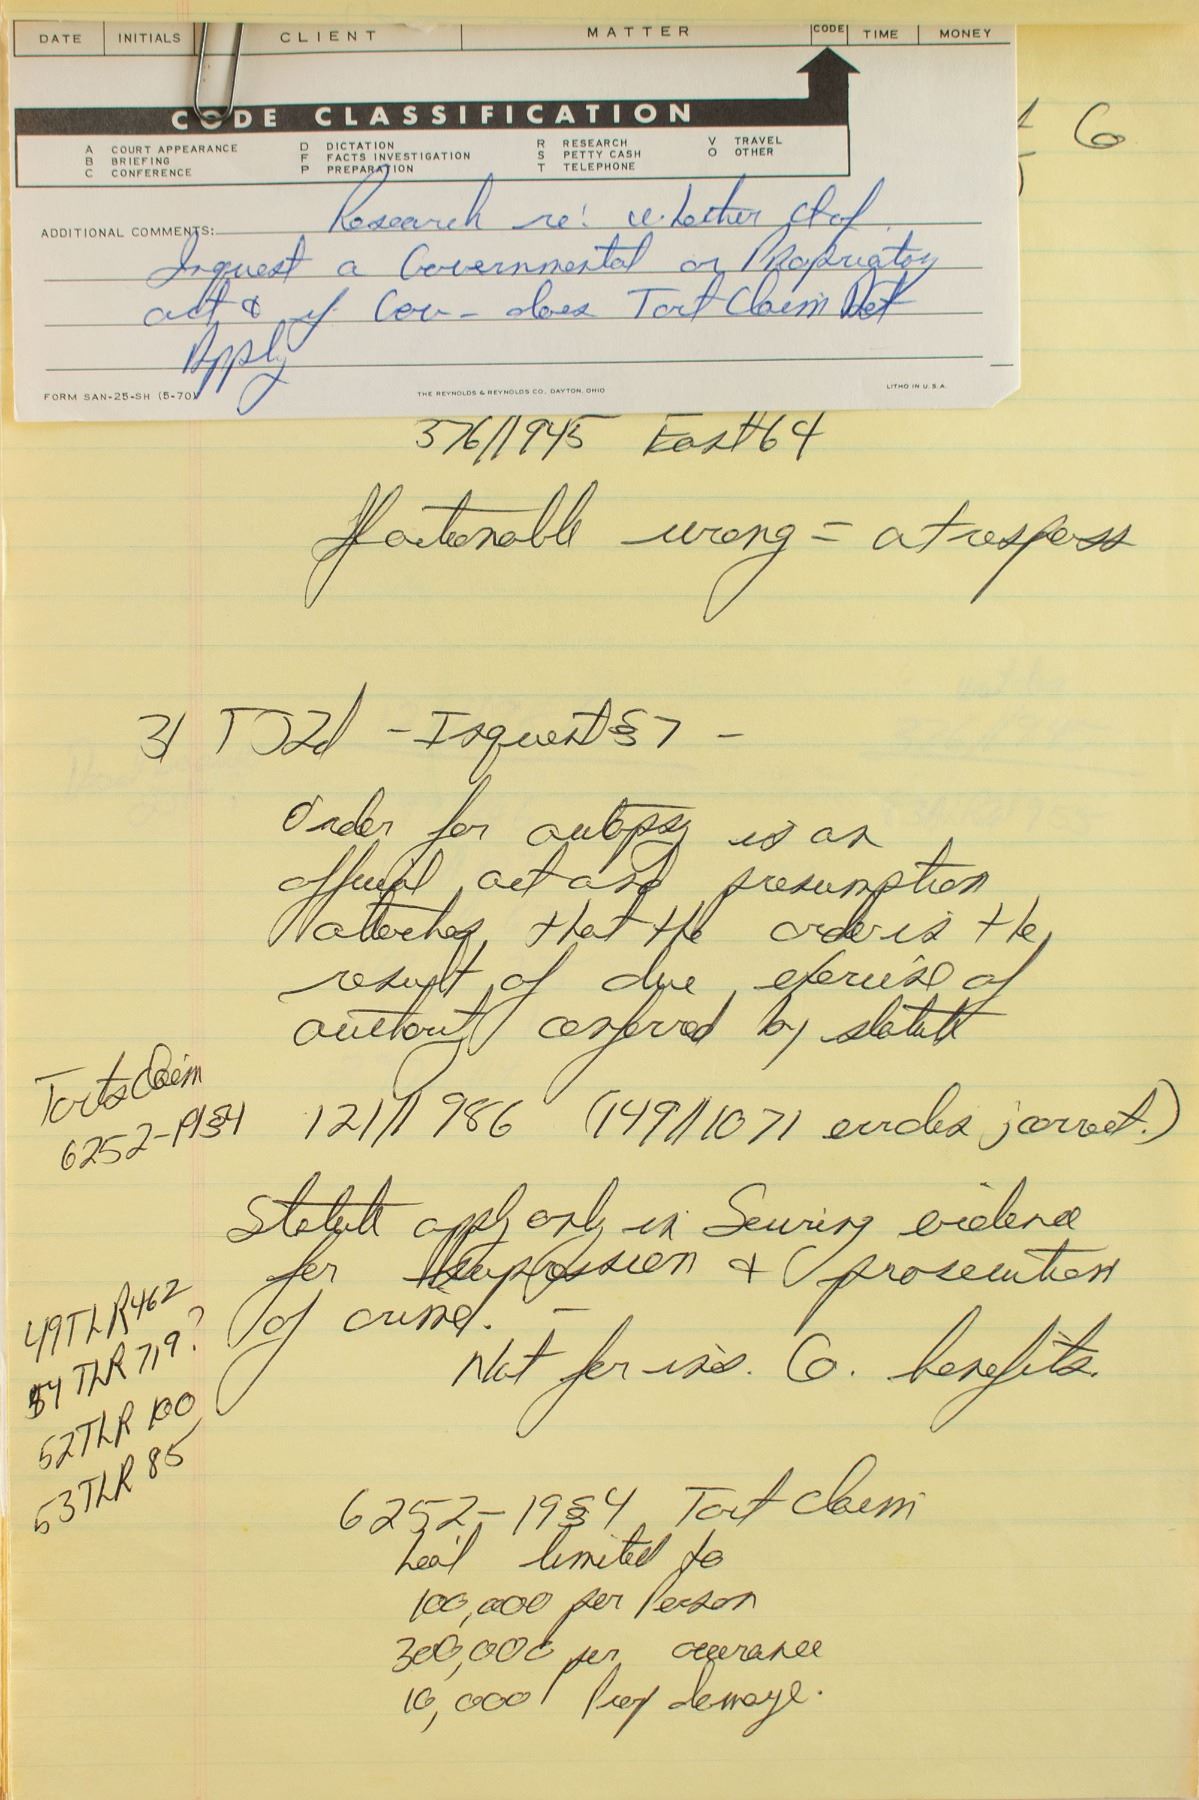 DATE INITIALS CLIENT MATTER CODE TIME MONEY
CODE CLASSIFICATION
A COURT APPEARANCE D DICTATION R RESEARCH V TRAVEL
B BRIEFING F FACTS INVESTIGATION S PETTY CASH O OTHER
C CONFERENCE P PREPARATION T TELEPHONE
ADDITIONAL COMMENTS: Research re: whether
Inquest a Governmental or Propriatory
act & if Gov - does Tort Claim Act
Apply
FORM SAN-25-SH (5-70) THE REYNOLDS & REYNOLDS CO., DAYTON, OHIO LITHO IN U.S.A.
Co
376//945 East 64
actionable wrong = a trespass
3/ TJ2d - Inquest § 7 -
Order for autopsy is an
official act and presumption
attaches that the order is the
result of due exercise of
authority conferred by statute
Torts Claim
6252-19 § 4
121// 986 (149//1071 correct.)
Statute apply only in securing evidence
for suppression & prosecution
of crime.
Not for ins. Co. benefits.
49 TLR 462
54 TLR 719?
52 TLR 100
53 TLR 85
6252-19 § 4 Tort Claim
limited to
100,000 per Person
300,000 per occurance
10,000 Prop damage.